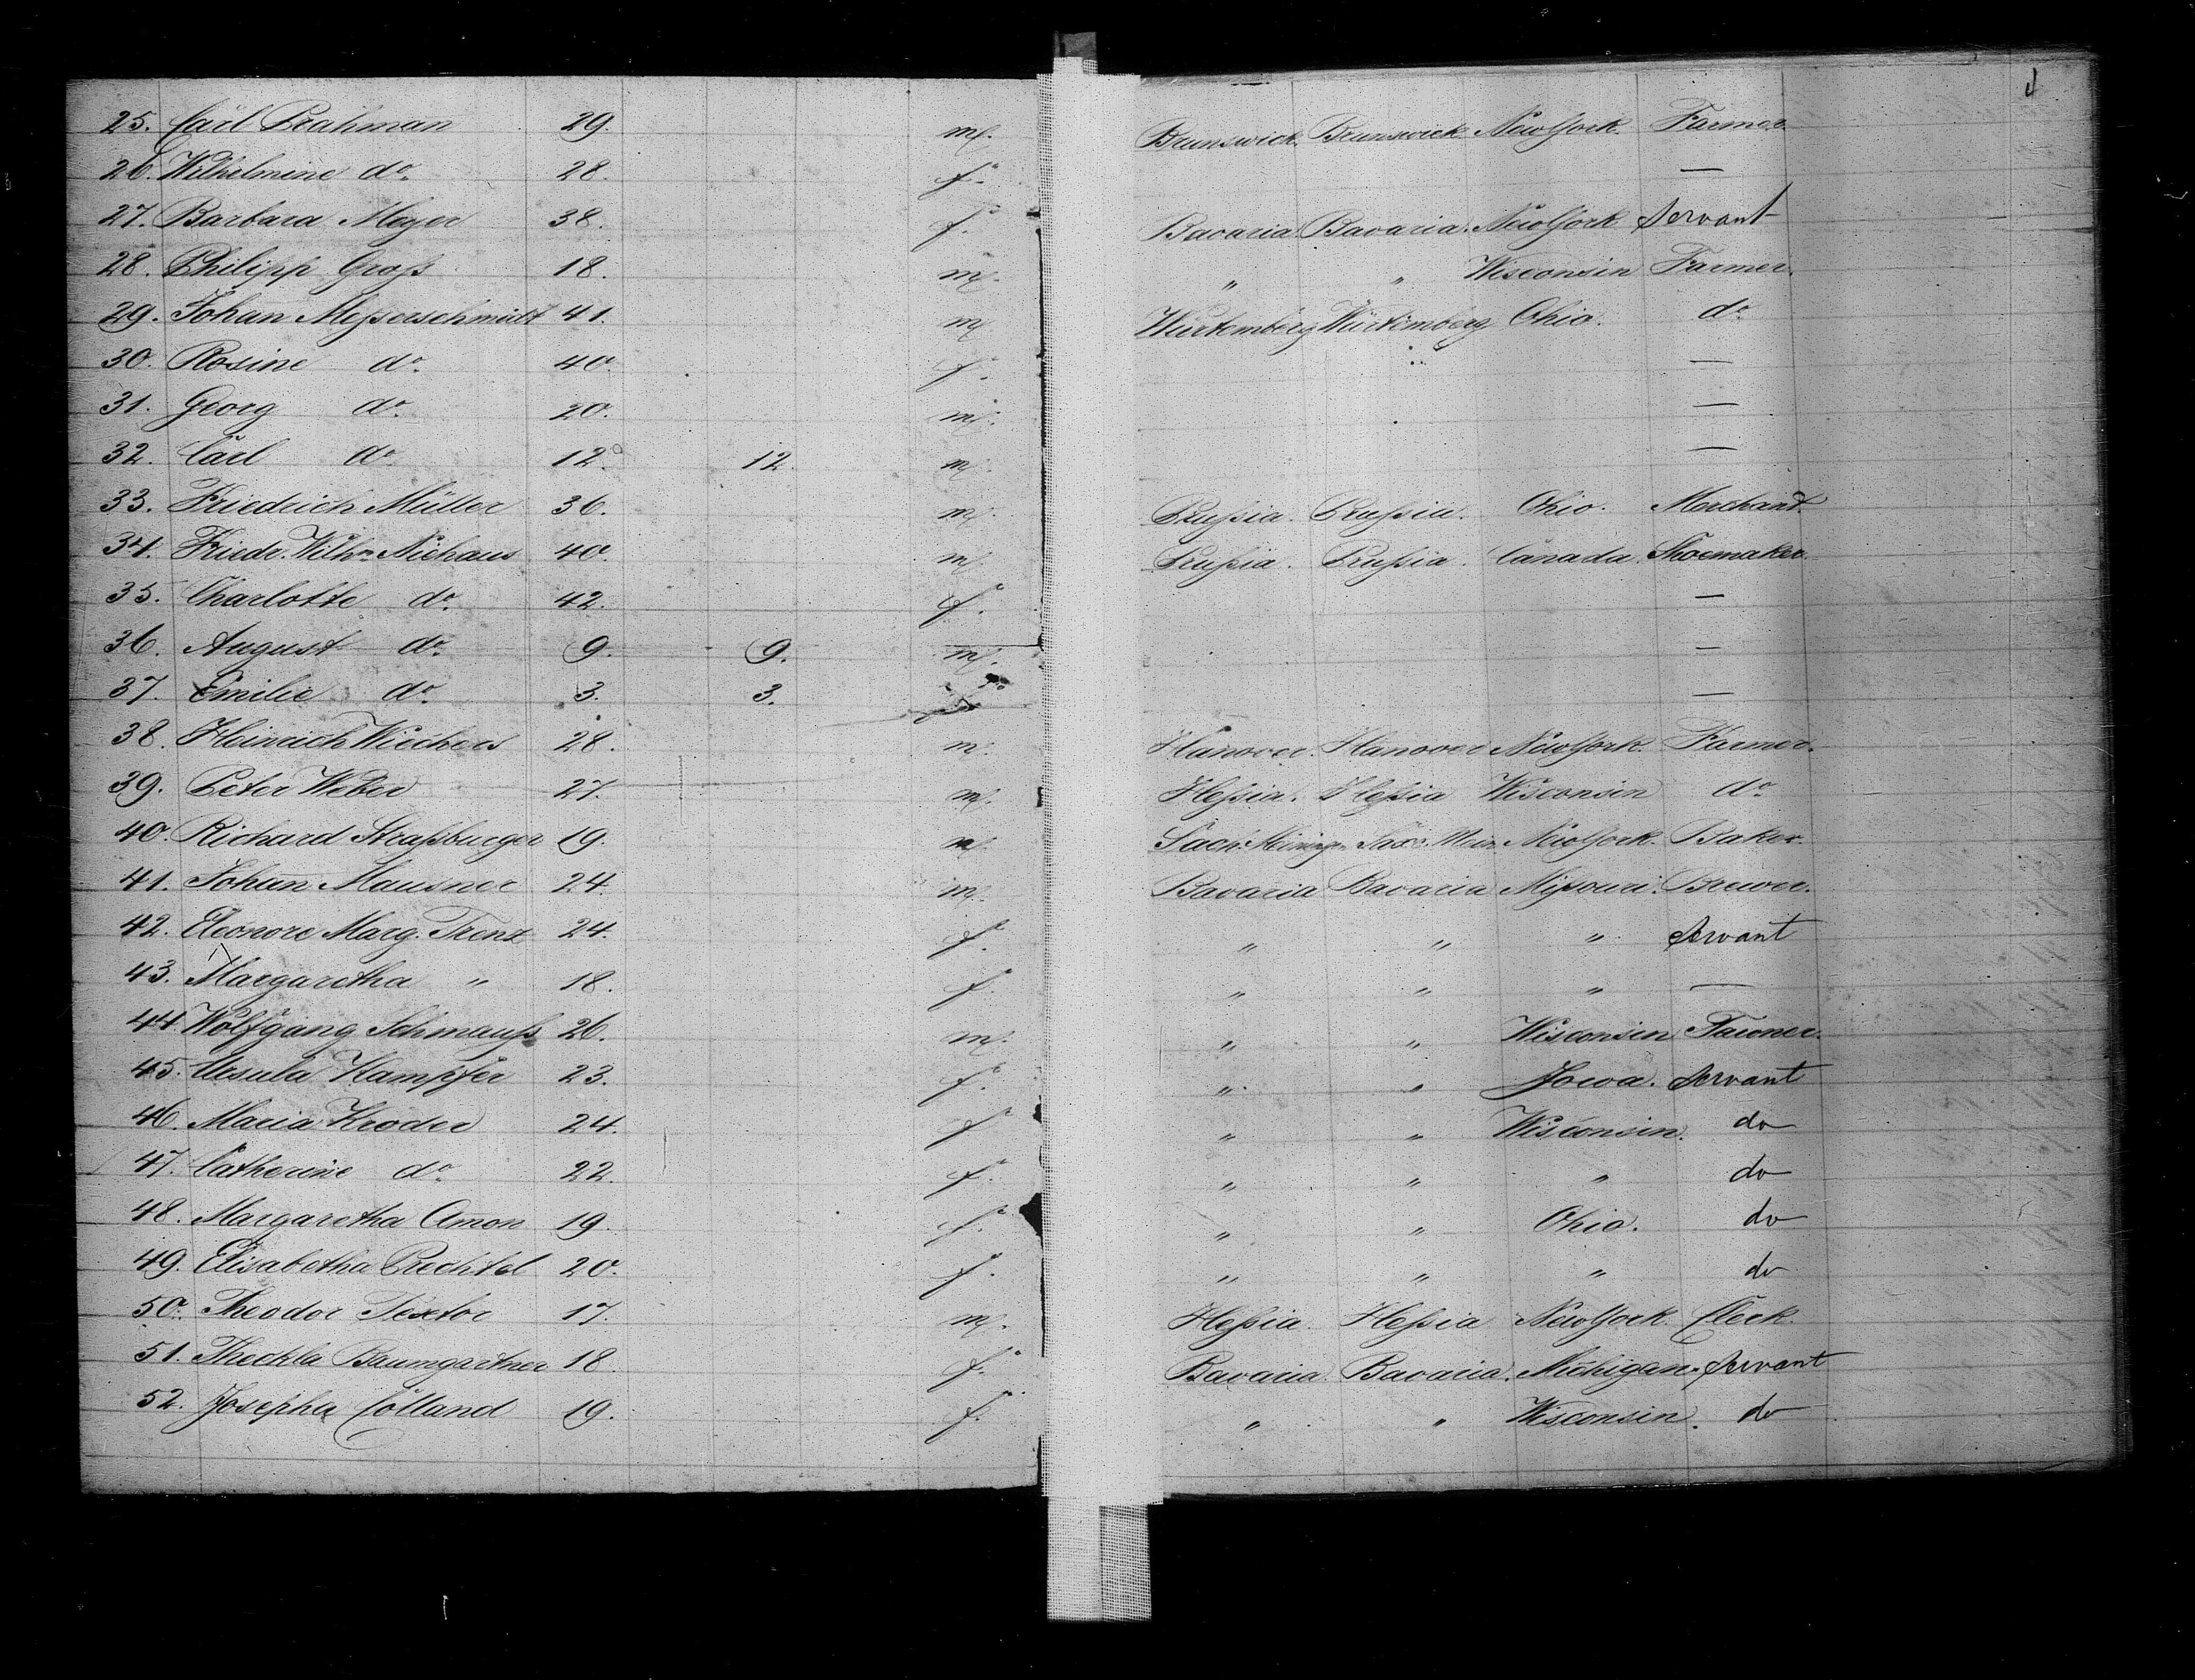 25. Carl Brahman 29. m. Brunswick. Brunswick New York. Farmer.
26. Wilhelmine do. 28. f. —
27. Barbara Meyer 38. f. Bavaria Bavaria. New York Servant
28. Philipp Groß 18. m. " " Wisconsin Farmer.
29. Johan Meßerschmidt 41. m. Würtemberg Würtemberg Ohio. do
30. Rosine do. 40. f. " —
31. Georg do. 20. m. —
32. Carl do. 12. 12. m. —
33. Friedrich Müller 36. m. Prußia. Prußia. Ohio. Merchant.
34. Friedr. Wilhm. Niehaus 40. m. Prußia. Prußia. Canada. Shoemaker.
35. Charlotte do. 42. f. —
36. August do. 9. 9. m. —
37. Emilie do. 3. 3. —
38. Heinrich Wiechers 28. m. Hanover. Hanover New York Farmer.
39. Peter Weber 27. m. Heßia. Heßia Wisconsin do
40. Richard Straßburger 19. m. Sach. Mein. New York. Baker.
41. Johan Mausner 24. m. Bavaria Bavaria Mißouri. Brewer.
42. Eleonore Marg. Trenz 24. f. " " " Servant
43. Margaretha " 18. f. " " " —
44. Wolfgang Schmauß 26. m. " " Wisconsin Farmer.
45. Ursula Kampfer 23. f. " " Iowa. Servant
46. Maria Kroder 24. f " " Wisconsin. do
47. Catherine do. 22. f. " " " do
48. Margaretha Amon 19. f. " " Ohio. do
49. Elisabetha Prechtel 20. f. " " " do
50. Theodor Textor 17. m. Heßia. Heßia New York. Clerk.
51. Theckla Baumgartner 18. f. Bavaria. Bavaria. Michigan. Servant
52. Josepha Colland 19. f. " " Wisconsin. do